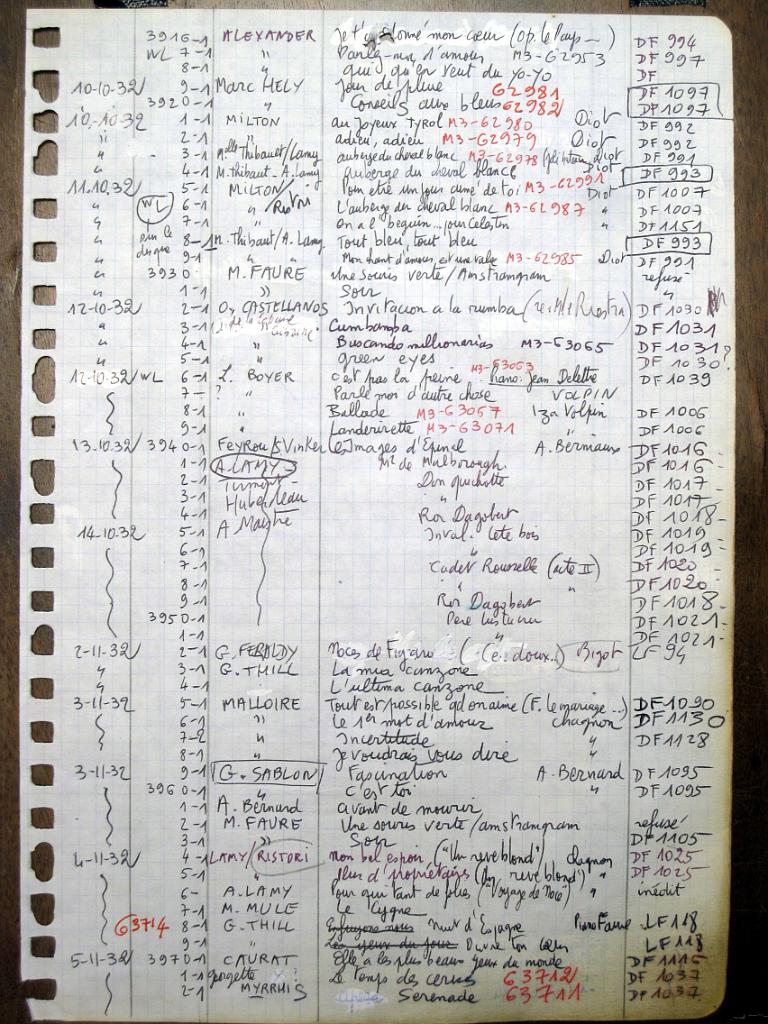 3916-1 ALEXANDER Je t'ai donné mon cœur (Op. le Pays ...) DF 994
WL 7-1 " Parlez-moi d'amour M3-62953 DF 997
8-1 " qui qu'en veut du yo-yo DF
10-10-32 9-1 Marc HELY Jour de pluie 62981 DF 1097
3920-1 " Conseils aux bleus 62982 DF 1097
10-10-32 1-1 MILTON au Joyeux Tyrol M3-62980 Diot DF 992
" 2-1 " adieu, adieu M3-62979 Diot DF 992
" 3-1 Mlle Thibault/Lamy auberge du cheval blanc M3-62978 Diot DF 991
" 4-1 M. Thibault - A. Lamy auberge du cheval blanc Diot DF 993
11.10.32 5-1 MILTON Pour être un jour aimé de toi M3-62991 Diot DF 1007
" WL 6-1 " /Ristori L'auberge du cheval blanc M3-62987 " DF 1007
" 7-1 " on a l'béguin... pour Célestin " DF 1151
" sur le disque 8-1 M. Thibaut/A. Lamy Tout bleu, tout bleu DF 993
" 9-1 " Mon chant d'amour, est une valse M3-62985 Diot DF 991
" 3930-1 M. FAURE Une Souris verte / Amstramgram refusé
" 1-1 " Soir "
12-10-32 2-1 O. CASTELLANOS Invitacion a la rumba DF 1030
" 3-1 Cumbamba DF 1031
" 4-1 " Buscando millonarias M3-63065 DF 1031?
" 5-1 " green eyes DF 1030?
12-10-32 WL 6-1 L. BOYER c'est pas la peine M3-63063 Piano: Jean Delettre DF 1039
7- ? " Parle moi d'autre chose VOLPIN
8-1 " Ballade M3-63067 Iza Volpin DF 1006
9-1 " Landerirette M3-63071 " DF 1006
13.10.32 3940-1 Feyroux/Vinker Les Images d'Epinal A. Berniaux DF 1016
1-1 A. LAMY - Mt de Malborough DF 1016 -
2-1 Don quichotte DF 1017 -
3-1 Huberdeau " DF 1017 -
4-1 A Maistre Roi Dagobert DF 1018 -
14-10-32 5-1 Inval. tete bois DF 1019
6-1 " DF 1019 -
7-1 Cadet Rousselle (acte II) DF 1020
8-1 " " DF 1020
9-1 Roi Dagobert DF 1018 -
3950-1 Pere lustucru DF 1021 -
1-1 " DF 1021 -
2-11-32 2-1 G. FERALDY Noces de Figaro (Ce doux..) Bigot LF 94
" 3-1 G. THILL La mia canzone
" 4-1 " L'ultima canzone
3-11-32 5-1 MALLOIRE Tout est possible qd on aime (F. le mariage ...) DF 1090
6-1 " Le 1er mot d'amour chagnon DF 1130
7-2 " Incertitude " DF 1128
8-1 " Je voudrais vous dire "
3-11-32 9-1 G. SABLON Fascination A. Bernard DF 1095
3960-1 " c'est toi " DF 1095
1-1 A. Bernard avant de mourir
2-1 M. FAURE Une souris verte/amstramgram refusé
3-1 " Soir DF 1105
4-11-32 4-1 LAMY/RISTORI Mon bel espoir ("Un reve blond") chagnon DF 1025
5-1 " Plus d'propriétaires (Un reve blond") " DF 1025
6- A. LAMY Pour qui tant de jolies ("Voyage de Noce") " inédit
7-1 M. MULE Le Cygne
63714 8-1 G. THILL Enfuyons nous Nuit d'Espagne Piano Faure LF 118
9-1 " Les yeux du jour Ouvre ton cœur LF 118
5-11-32 3970-1 CAURAT Elle a les plus beaux yeux du monde DF 1115
1-1 Georgette ? Le Temps des cerises 63712 DF 1037
2-1 MYRRHIS Serenade 63711 DF 1037